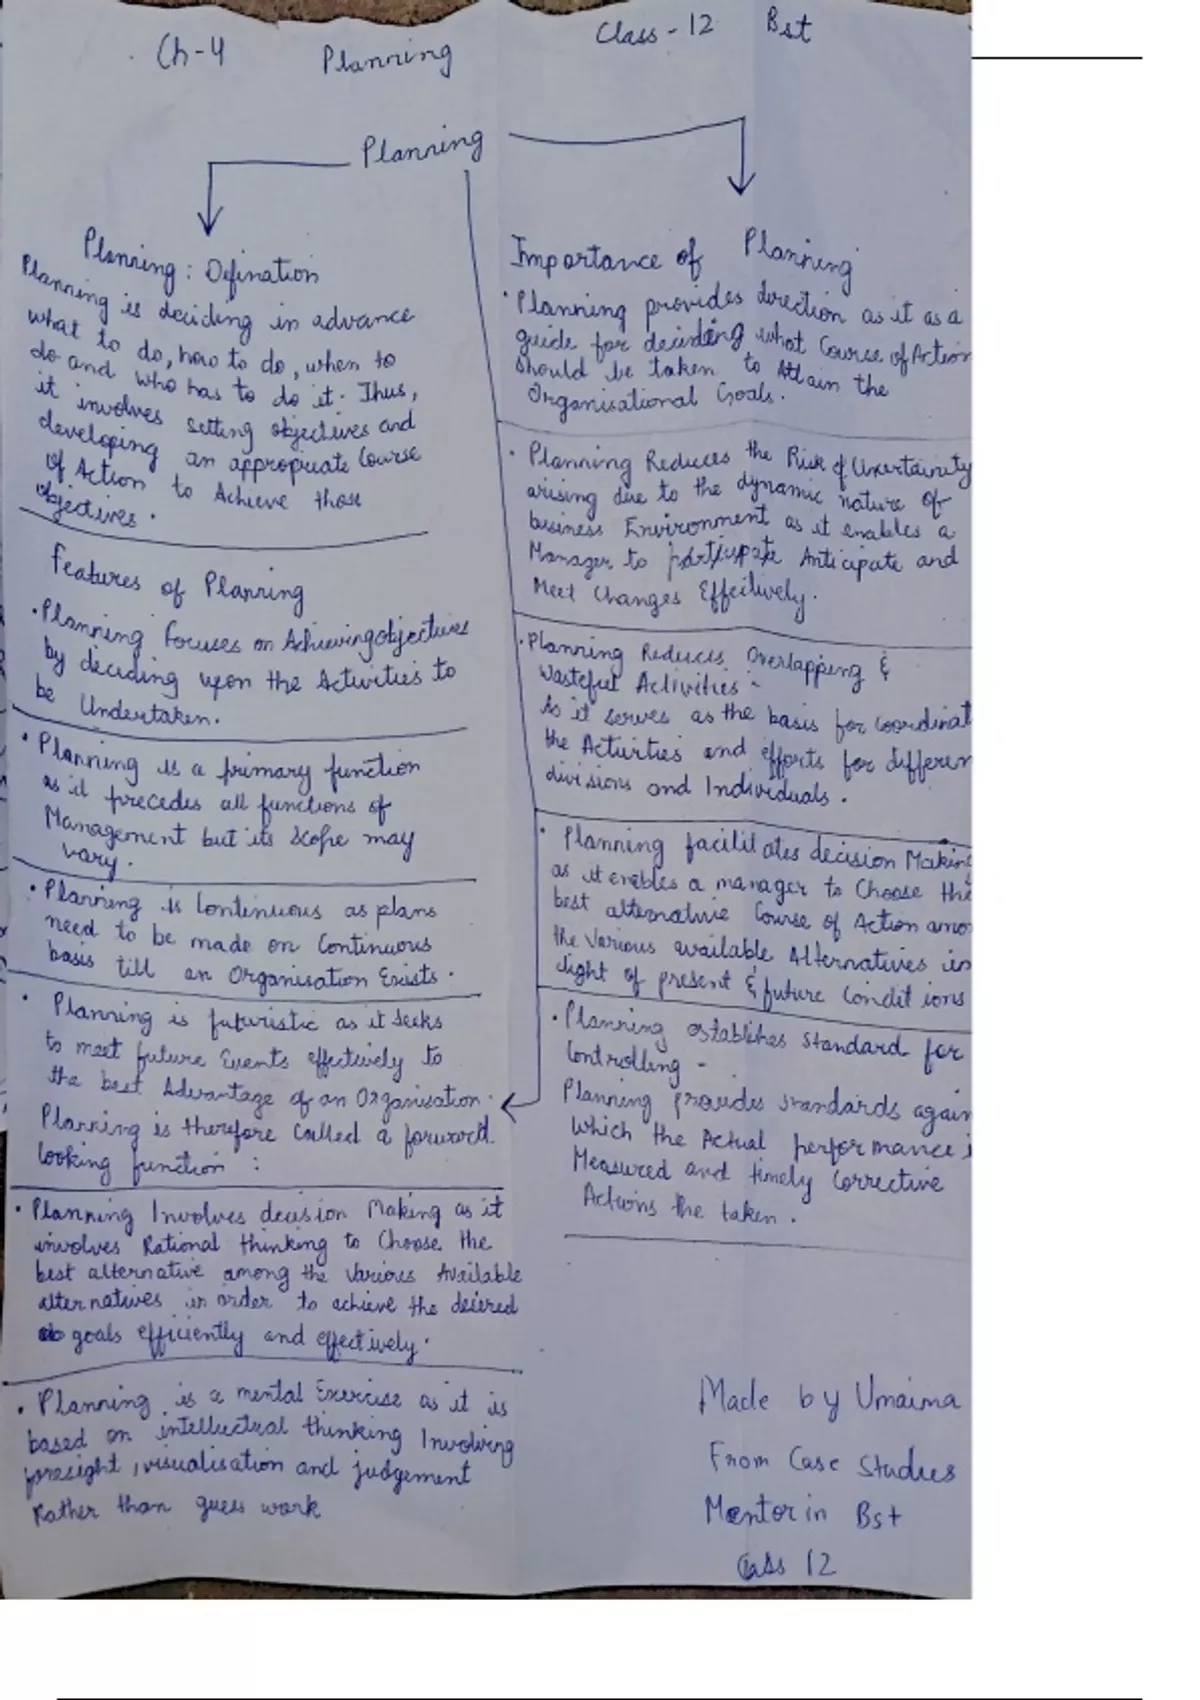 Ch-4 Planning Class-12 Bst
Planning
Planning : Defination
Planning is deciding in advance
what to do, how to do, when to
do and who has to do it. Thus,
it involves setting objectives and
developing an appropriate Course
of Action to Achieve those
objectives.
Features of Planning
• Planning focuses on Achieving objectives
by deciding upon the Activities to
be Undertaken.
• Planning is a primary function
as it precedes all functions of
Management but its scope may
vary.
• Planning is Continuous as plans
need to be made on Continuous
basis till an Organisation Exists.
• Planning is futuristic as it seeks
to meet future Events effectively to
the best Advantage of an Organisation.
Planning is therefore Called a forward
looking function :
• Planning Involves decision Making as it
involves Rational thinking to Choose the
best alternative among the Various Available
alternatives in order to achieve the desired
goals efficiently and effectively.
• Planning is a mental Exercise as it is
based on intellectral thinking Involving
foresight, visualisation and judgement
Rather than guess work
Importance of Planning
• Planning provides direction as it as a
guide for deciding what Course of Action
should be taken to Attain the
Organisational Goals.
• Planning Reduces the Risk of Uncertainity
arising due to the dynamic nature of
business Environment as it enables a
Manager to participate Anticipate and
Meet Changes Effectively.
• Planning Reduces Overlapping &
Wasteful Activities -
As it serves as the basis for Coordinat
the Activities and efforts for differen
divisions and Individuals.
• Planning facilitates decision Making
as it enables a manager to Choose the
best alternative Course of Action amo
the Various available Alternatives in
light of present & future Conditions
• Planning establishes Standard for
Controlling -
Planning provides standards again
which the Actual performance i
Measured and timely Corrective
Actions the taken.
Made by Umaima
From Case Studies
Mentor in Bst
Class 12